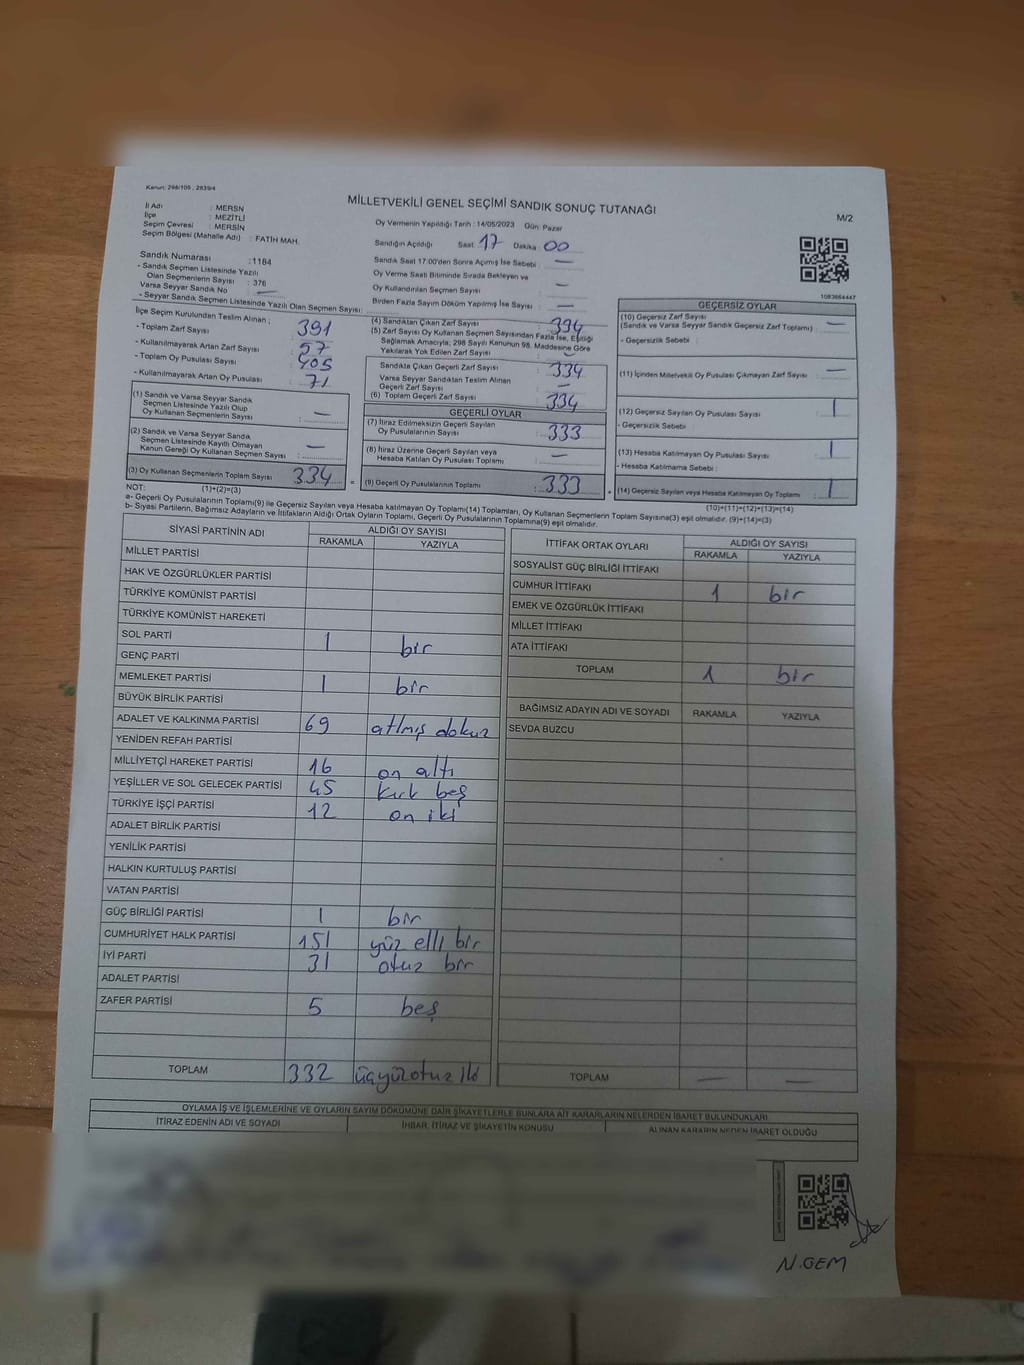 Kanun: 298/105 , 2839/4
MİLLETVEKİLİ GENEL SEÇİMİ SANDIK SONUÇ TUTANAĞI
M/2
İl Adı : MERSN
İlçe : MEZİTLİ
Seçim Çevresi : MERSİN
Seçim Bölgesi (Mahalle Adı) : FATİH MAH.
Oy Vermenin Yapıldığı Tarih : 14/05/2023 Gün: Pazar
Sandığın Açıldığı Saat : 17 Dakika : 00
Sandık Numarası :1184
- Sandık Seçmen Listesinde Yazılı
Olan Seçmenlerin Sayısı : 376
Varsa Seyyar Sandık No : —
- Seyyar Sandık Seçmen Listesinde Yazılı Olan Seçmen Sayısı :
Sandık Saat 17:00'den Sonra Açımış İse Sebebi : —
Oy Verme Saati Bitiminde Sırada Bekleyen ve
Oy Kullandırılan Seçmen Sayısı : —
Birden Fazla Sayım Döküm Yapılmış İse Sayısı : —
1093664447
İlçe Seçim Kurulundan Teslim Alınan ;
- Toplam Zarf Sayısı : 391
- Kullanılmayarak Artan Zarf Sayısı : 57
- Toplam Oy Pusulası Sayısı : 405
- Kullanılmayarak Artan Oy Pusulası : 71
(1) Sandık ve Varsa Seyyar Sandık
Seçmen Listesinde Yazılı Olup
Oy Kullanan Seçmenlerin Sayısı : —
(2) Sandık ve Varsa Seyyar Sandık
Seçmen Listesinde Kayıtlı Olmayan
Kanun Gereği Oy Kullanan Seçmen Sayısı : —
(3) Oy Kullanan Seçmenlerin Toplam Sayısı : 334
(4) Sandıktan Çıkan Zarf Sayısı : 394
(5) Zarf Sayısı Oy Kullanan Seçmen Sayısından Fazla İse, Eşitliği
Sağlamak Amacıyla; 298 Sayılı Kanunun 98. Maddesine Göre
Yakılarak Yok Edilen Zarf Sayısı
Sandıkta Çıkan Geçerli Zarf Sayısı : 334
Varsa Seyyar Sandıktan Teslim Alınan
Geçerli Zarf Sayısı : —
(6) Toplam Geçerli Zarf Sayısı : 334
GEÇERLİ OYLAR
(7) İtiraz Edilmeksizin Geçerli Sayılan
Oy Pusulalarının Sayısı : 333
(8) İtiraz Üzerine Geçerli Sayılan veya
Hesaba Katılan Oy Pusulası Toplamı : —
(9) Geçerli Oy Pusulalarının Toplamı : 333
GEÇERSİZ OYLAR
(10) Geçersiz Zarf Sayısı
(Sandık ve Varsa Seyyar Sandık Geçersiz Zarf Toplamı) : —
- Geçersizlik Sebebi :
(11) İçinden Milletvekili Oy Pusulası Çıkmayan Zarf Sayısı : —
(12) Geçersiz Sayılan Oy Pusulası Sayısı : 1
- Geçersizlik Sebebi :
(13) Hesaba Katılmayan Oy Pusulası Sayısı : 1
- Hesaba Katılmama Sebebi :
(14) Geçersiz Sayılan veya Hesaba Katılmayan Oy Toplamı : 1
NOT: (1)+(2)=(3)
(10)+(11)+(12)+(13)=(14)
a- Geçerli Oy Pusulalarının Toplamı(9) ile Geçersiz Sayılan veya Hesaba katılmayan Oy Toplamı(14) Toplamları, Oy Kullanan Seçmenlerin Toplam Sayısına(3) eşit olmalıdır. (9)+(14)=(3)
b- Siyasi Partilerin, Bağımsız Adayların ve İttifakların Aldığı Ortak Oyların Toplamı, Geçerli Oy Pusulalarının Toplamına(9) eşit olmalıdır.
SİYASİ PARTİNİN ADI ALDIĞI OY SAYISI
RAKAMLA YAZIYLA
MİLLET PARTİSİ
HAK VE ÖZGÜRLÜKLER PARTİSİ
TÜRKİYE KOMÜNİST PARTİSİ
TÜRKİYE KOMÜNİST HAREKETİ
SOL PARTİ 1 bir
GENÇ PARTİ
MEMLEKET PARTİSİ 1 bir
BÜYÜK BİRLİK PARTİSİ
ADALET VE KALKINMA PARTİSİ 69 atlmış dokuz
YENİDEN REFAH PARTİSİ
MİLLİYETÇİ HAREKET PARTİSİ 16 on altı
YEŞİLLER VE SOL GELECEK PARTİSİ 45 kırk beş
TÜRKİYE İŞÇİ PARTİSİ 12 on iki
ADALET BİRLİK PARTİSİ
YENİLİK PARTİSİ
HALKIN KURTULUŞ PARTİSİ
VATAN PARTİSİ
GÜÇ BİRLİĞİ PARTİSİ 1 bir
CUMHURİYET HALK PARTİSİ 151 yüz elli bir
İYİ PARTİ 31 otuz bir
ADALET PARTİSİ
ZAFER PARTİSİ 5 beş
TOPLAM 332 üçyüzotuz iki
İTTİFAK ORTAK OYLARI ALDIĞI OY SAYISI
RAKAMLA YAZIYLA
SOSYALİST GÜÇ BİRLİĞİ İTTİFAKI
CUMHUR İTTİFAKI 1 bir
EMEK VE ÖZGÜRLÜK İTTİFAKI
MİLLET İTTİFAKI
ATA İTTİFAKI
TOPLAM 1 bir
BAĞIMSIZ ADAYIN ADI VE SOYADI RAKAMLA YAZIYLA
SEVDA BUZCU
TOPLAM — —
OYLAMA İŞ VE İŞLEMLERİNE VE OYLARIN SAYIM DÖKÜMÜNE DAİR ŞİKAYETLERLE BUNLARA AİT KARARLARIN NELERDEN İBARET BULUNDUKLARI
İTİRAZ EDENİN ADI VE SOYADI İHBAR, İTİRAZ VE ŞİKAYETİN KONUSU ALINAN KARARIN NEDEN İBARET OLDUĞU
N.GEM